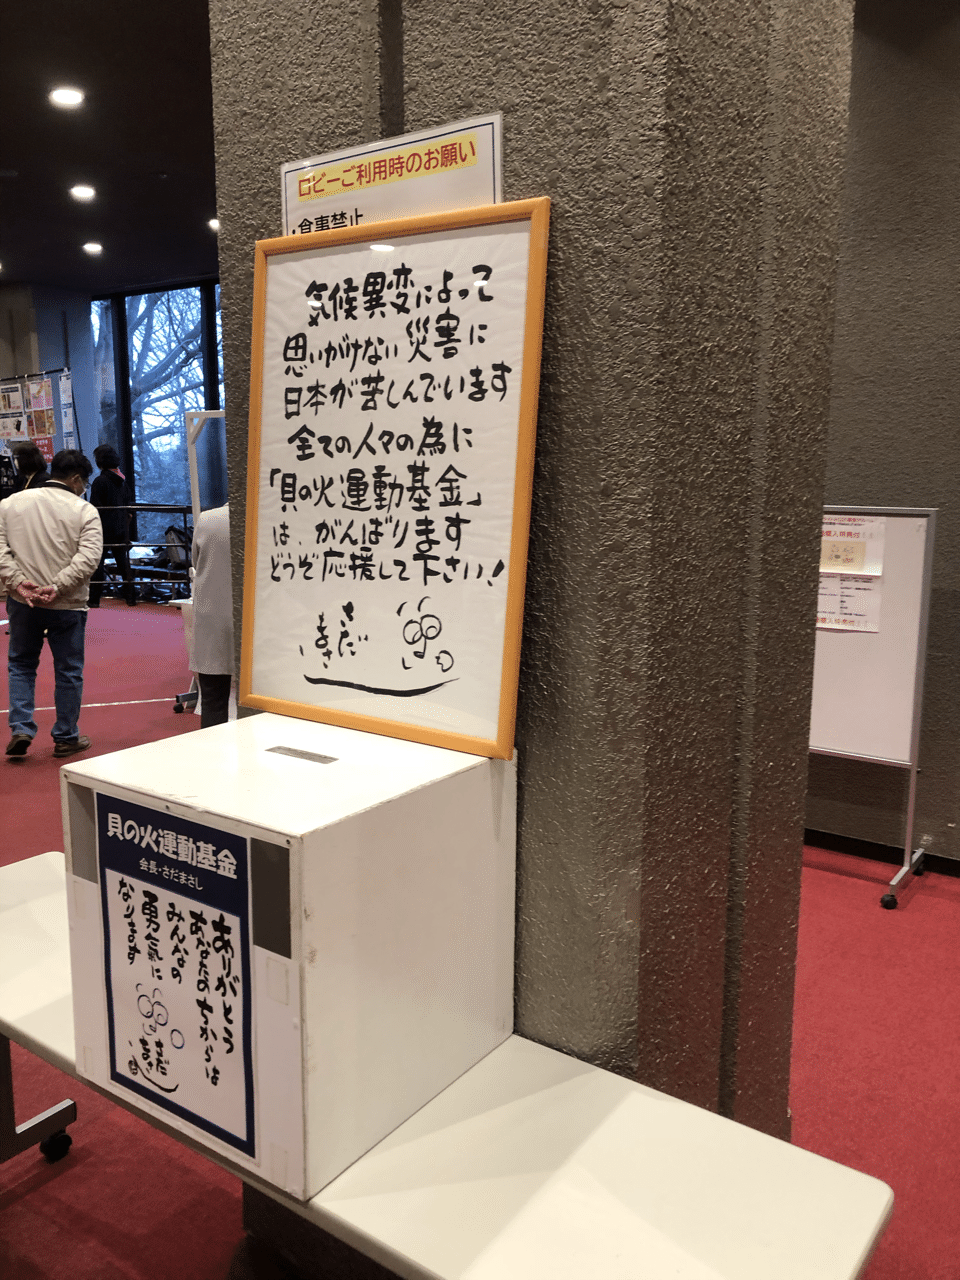 ロビーご利用時のお願い
・食事禁止
気候異変によって
思いがけない災害に
日本が苦しんでいます
全ての人々の為に
「貝の火運動基金」
は、がんばります
どうぞ応援して下さい!
さだ
まさし
貝の火運動基金
会長・さだまさし
ありがとう
あなたのちからは
みんなの
勇気に
なります
さだ
まさし